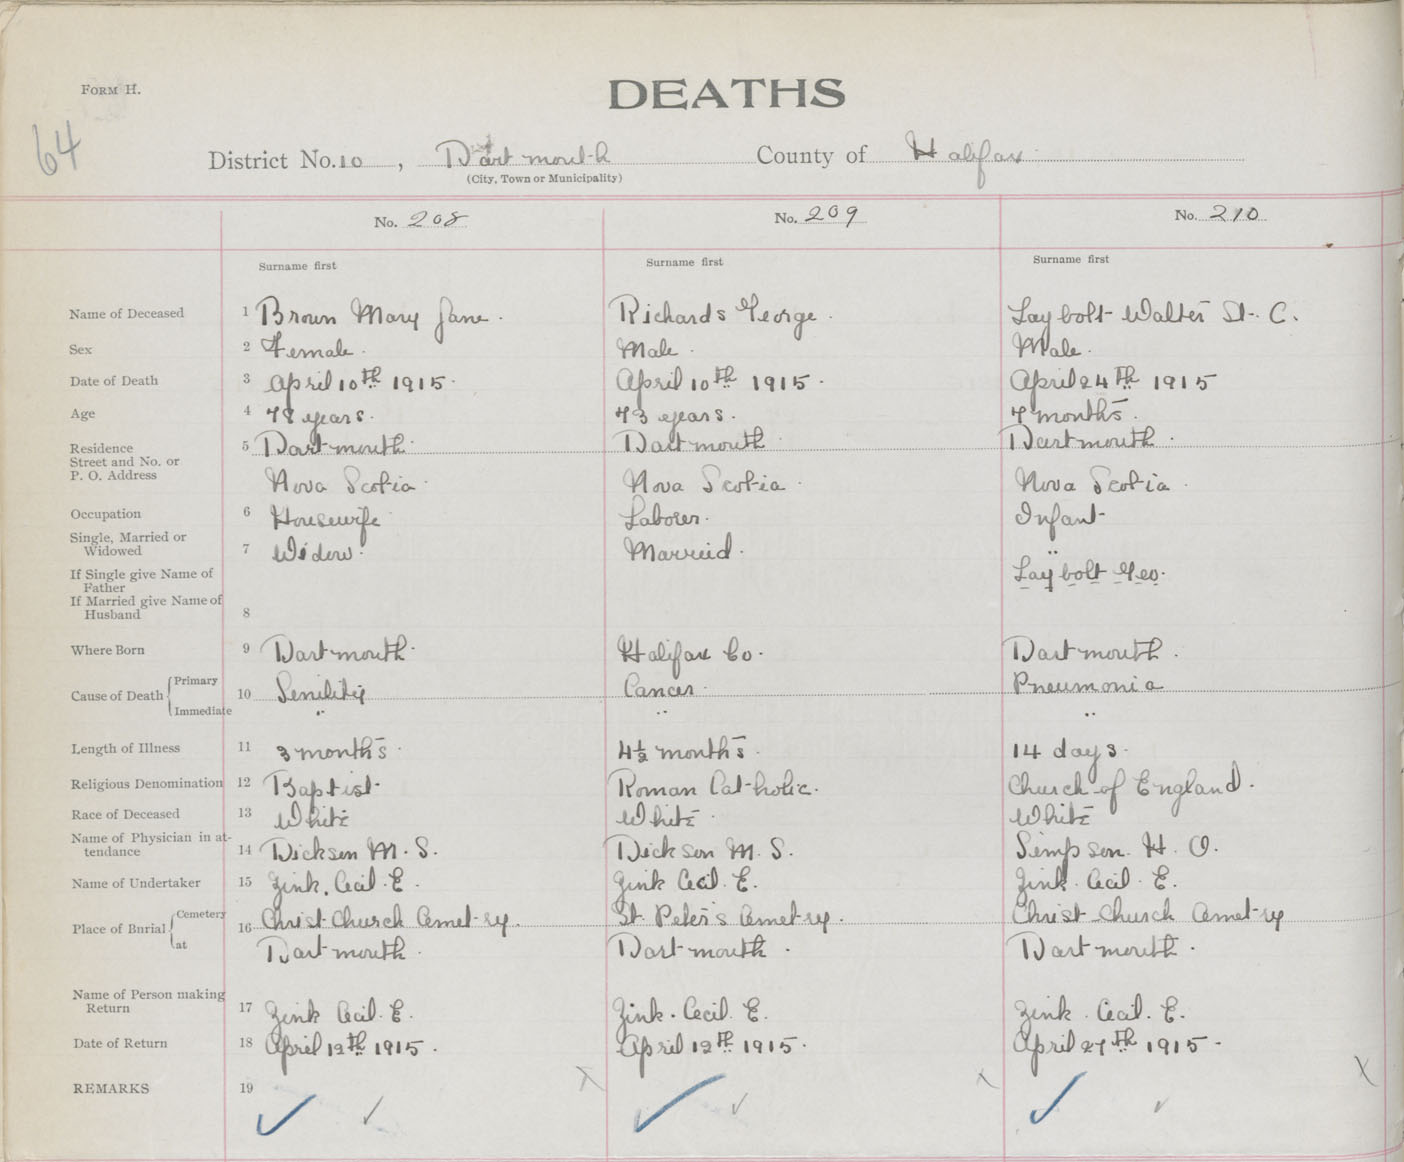 FORM H.
DEATHS
64
District No. 10, Dartmouth County of Halifax
(City, Town or Municipality)
No. 208 No. 209 No. 210
Surname first Surname first Surname first
Name of Deceased 1 Brown Mary Jane. Richards George. Laybolt Walter St. C.
Sex 2 Female. Male. Male.
Date of Death 3 April 10th 1915. April 10th 1915. April 24th 1915
Age 4 78 years. 73 years. 7 months.
Residence 5 Dartmouth Dartmouth Dartmouth.
Street and No. or
P. O. Address Nova Scotia Nova Scotia. Nova Scotia.
Occupation 6 Housewife Laborer. Infant
Single, Married or
Widowed 7 Widow. Marreid. "
If Single give Name of Laybolt Geo.
Father
If Married give Name of
Husband 8
Where Born 9 Dartmouth Halifax Co. Dartmouth.
Cause of Death { Primary 10 Senility Cancer. Pneumonia
Immediate " " "
Length of Illness 11 3 months. 4½ months. 14 days.
Religious Denomination 12 Baptist. Roman Catholic. Church of England.
Race of Deceased 13 White White White
Name of Physician in at-
tendance 14 Dickson M. S. Dickson M. S. Simpson. H. O.
Name of Undertaker 15 Zink. Cecil. E. Zink Cecil. E. Zink. Cecil. E.
Place of Burial { Cemetery 16 Christ Church Cemetry. St. Peter's Cemetry. Christ Church Cemetry
at Dartmouth. Dartmouth. Dartmouth.
Name of Person making
Return 17 Zink Cecil. E. Zink. Cecil. E. Zink. Cecil. E.
Date of Return 18 April 12th 1915. April 12th 1915. April 27th 1915.
REMARKS 19